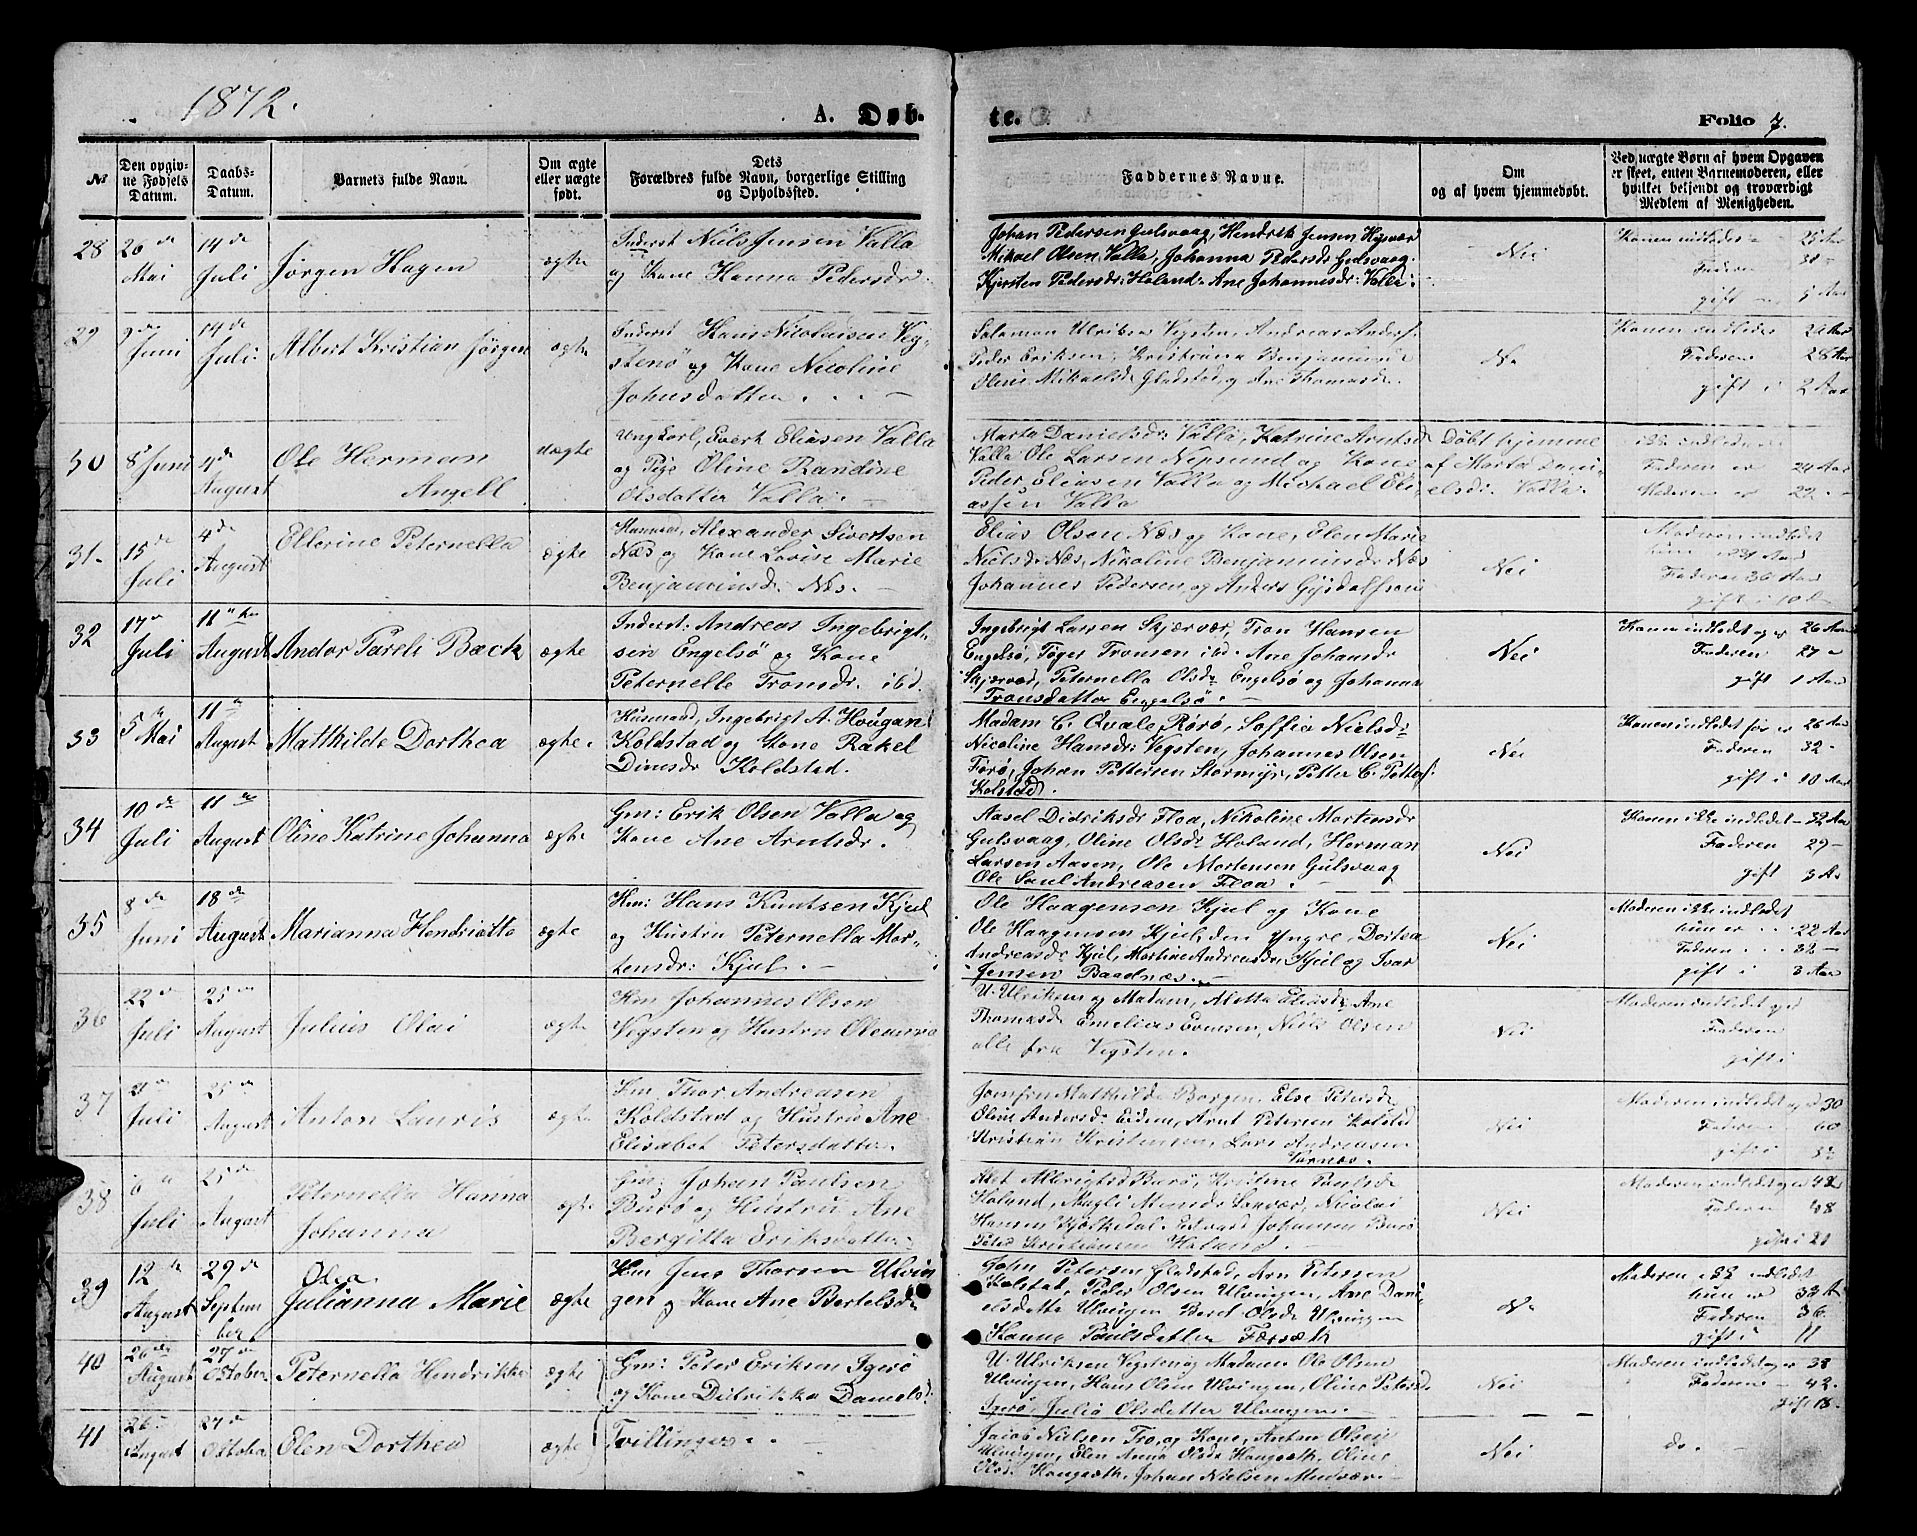 1872.
A. Døb-
te.
Folio 7.
№
Den opgiv-
ne Fødsels
Datum.
Daabs-
Datum.
Barnets fulde Navn.
Om ægte
eller uægte
født.
Dets
Forældres fulde Navn, borgerlige Stilling
og Opholdssted.
Faddernes Navne.
Om
og af hvem hjemmedøbt.
Ved uægte Børn af hvem Opgaven
er skeet, enten Barnemoderen, eller
hvilket bekjendt og troværdigt
Medlem af Menigheden.
28
20 de
Mai
14 de
Juli
Jørgen Hagen
ægte
Inderst Niels Jensen Valla
og Kone Hanna Pedersdr
Johan Pedersen Gulsvaag, Hendrik Jensen Hysvær
Mikael Olsen Valla, Johanna Pedersdr Gulsvaag
Kjersten Pedersdr: Holand. Ane Johannesdr: Valla:
Nei
Konen indledet 25 Aar
Faderen 31
gift 5 Aar
29
9 de
Juni
14 de
Juli.
Albert Kristian Jørgen
ægte
Inderst Hans Nicolaisen Veg-
stenø og Kone Nicoline
Johnsdatter
Salamon Ulriksen Vegsten, Andreas Anders:
Peder Eriksen, Kristianna Benjaminsd
Oline Mikaelsdr Gladstad, og Ane Thomasdr.
Nei
Konen indledet 26 Aar
Faderen 28 Aar
gift i 2 Aar
30
8 Juni
4 de
August
Ole Herman
Angell
uægte
Ungkarl, Evert Eliasen Valla
og Pige Oline Randine
Olsdatter Valla.
Marta Danielsdr: Valla, Katrine Arntsd
Valla Ole Larsen Nepsund og Kone
Peder Eliasen Valla og Michael Eli-
assen Valla
Døbt hjemme
af Marta Dani-
elsdr: Valla.
ikke indledet
Faderen er 24 Aar
Moderen er 29
31
15 de
Juli
4 de
August
Ellerine Peternella
ægte
Husmand, Alexander Sivertsen
Næs og Kone Lovise Marie
Benjaminsdr Næs.
Elias Olsen Næs og Kone, Elen Marie
Nielsdr Næs, Nikoline Benjaminsdr Næs
Johannes Pedersen, og Anders
Nei
Moderen indledet
hun er 31 Aar
Faderen 36 Aar
gift i 10
32
17 de
Juli
11 te
August
Andor Pareli Back
ægte
Inderst: Andreas Ingebrigt-
sen Engelsø og Kone
Peternelle Tronsdr. ibd.
Ingebrigt Larsen Skjærvær, Tron Hansen
Engelsø, Tøger Tronsen ibd. Ane Johansdr
Skjærvær, Peternella Olsdr Engelsø og Johanna
Tronsdatter Engelsø
Nei
Konen indledet og er 26 Aar
Faderen 27
gift 1 Aar
33
5 te
Mai
11 te
August
Matthilde Dorthea
ægte
Husmand, Ingebrigt A. Hougan
Koldstad og Kone Rakel
Dinesdr Koldstad.
Madam C. Qvale Rørø, Soffia Nielsdr
Nicoline Hansdr: Vegsten, Johannes Olsen
Førø, Johan Pettersen Stormyr, Petter C. Petters:
Kolstad.
Nei
Konen indledet før er 26 Aar
Faderen 32
gift i 10 Aar
34
10 de
Juli
11 te
August
Oline Katrine Johanna
ægte
Gm: Erik Olsen Valla og
Kone Ane Arntsdr.
Aasel Didriksdr Floa, Nikoline Mortensdr
Gulsvaag, Oline Olsdr Holand, Herman
Larsen Aasen, Ole Mortensen Gulsvaag
Ole Saul Andreasen Floa.
Nei
Konen ikke indledet 32 Aar
Faderen 29
gift 3 Aar
35
8 de
Juni
18 de
August
Marianna Hendriette
ægte
Hm: Hans Knutsen Kjul
og Hustru Peternella Mor-
tensdr: Kjul.
Ole Haagensen Kjul og Kone
Ole Haagensen Kjul, den Yngre, Dortea
Andreasdr Kjul, Martine Andreasdr Kjul og Ivar
Jensen Baadnæs.
Nei
Moderen ikke indledet
hun er 22 Aar
Faderen 32
gift i 3 Aar
36
22 de
Juli
25 de
August
Julius Olai
ægte
Hm Johannes Olsen
Vegsten og Hustru Oleanna
U. Ulriksen og Madam, Aletta Eliasdr Ane
Thomasdr Emelius Evensen, Niels Olsen
alle fra Vegsten.
Nei
Moderen indledet og er
Faderen
gift i
37
21 de
Juli
25 de
August
Anton Lauris
ægte
Hm Thor Andreasen
Koldstad og Hustru Ane
Elisabet Petersdatter.
Jomfru Matthilde Borgen. Else Petersdr
Oline Andersdr Eidem, Arnt Petersen Kolstad
Kristian Kristensen, Lars Andreasen
Vornæs.
Nei
Moderen indledet og er 30
Faderen 60
gift i
38
6 te
Juli
25 de
August
Peternella Hanna
Johanna
ægte
Gm: Johan Paulsen
Burø og Hustru Ane
Bergitta Eriksdatter
Alet Albrigtsd Burø, Kristine Paulsdr
Holand, Magli Monsdr Sandvær, Nicolai
Hansen Fjordedal. Edvard Johansen Burø
Peter Kristiansen Holand.
Nei
Moderen indledet og er 42
Faderen 48
gift i 21
39
12 te
August
29 de
Septem
ber
Olea
Julianna Marie
ægte
Hm Jens Thorsen Ulvin
gen og Kone Ane Bertelsdr
John Petersen Gladstad, Arn Petersen
Kolstad, Peder Olsen Ulvingen, Ane Dani-
elsdatter Ulvingen Beret Olsdr Ulvingen
Hanna Paulsdatter Færsæth
Nei
Moderen ikke indledet
hun er 33 A
Faderen 36
gift i 11
40
26 de
August
27 de
Oktober
Peternella Hendrikke
ægte
Gm: Peter Eriksen Igerø
og Kone Didrikka Danielsd:
U. Ulriksen Vegsten og Madam Ole Olsen
Ulvingen, Hans Olsen Ulvingen, Oline Petersd
Igerø, Julia Olsdatter Ulvingen.
Nei
Moderen indledet og er 38
Faderen 42
gift 18
41
26
August
27 de
Oktober
Elen Dorthea
ægte
Tvillinger.
Jacob Nielsen Tro, og Kone, Anton Olsen
Ulvingen, Elen Anna Olsdr Haugsæth, Oline
Olsd. Haugsæth, Johan Nielsen Medvær.
Nei
do.